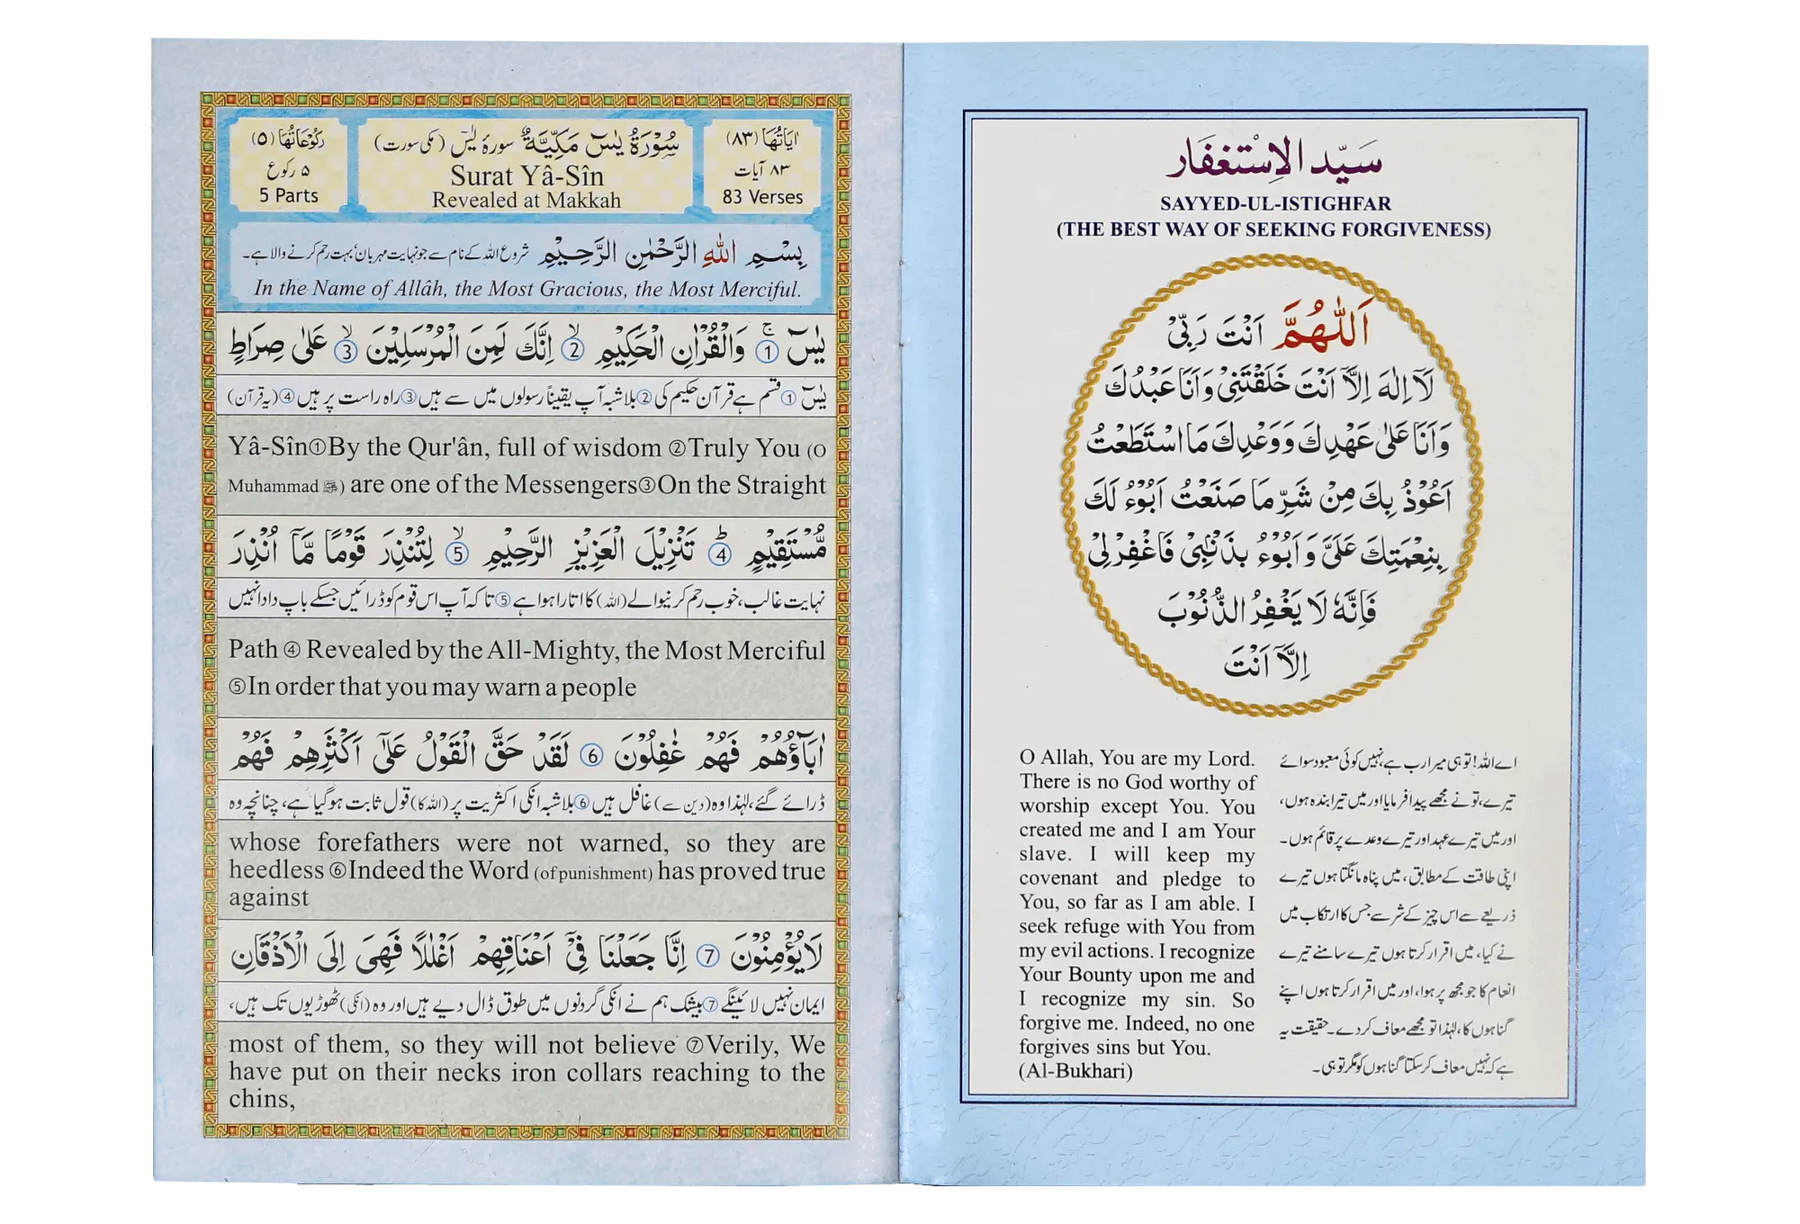 رُكُوْعَاتُهَا (۵)
۵ رکوع
5 Parts
سُوْرَةُ يٰسٓ مَكِّيَّةٌ سورۂ یٰسٓ (مکی سورت)
Surat Yâ-Sîn
Revealed at Makkah
اٰيَاتُهَا (۸۳)
۸۳ آیات
83 Verses
بِسْمِ اللّٰهِ الرَّحْمٰنِ الرَّحِيْمِ شروع اللہ کے نام سے جو نہایت مہربان، بہت رحم کرنے والا ہے۔
In the Name of Allâh, the Most Gracious, the Most Merciful.
يٰسٓ ۚ ① وَالْقُرْاٰنِ الْحَكِيْمِ ۙ ② اِنَّكَ لَمِنَ الْمُرْسَلِيْنَ ۙ ③ عَلٰى صِرَاطٍ
یٰسٓ ① قسم ہے قرآن حکیم کی ② بلاشبہ آپ یقیناً رسولوں میں سے ہیں ③ راہ راست پر ہیں ④ (یہ قرآن)
Yâ-Sîn①By the Qur'ân, full of wisdom ②Truly You (O
Muhammad ﷺ) are one of the Messengers③On the Straight
مُّسْتَقِيْمٍ ؕ ④ تَنْزِيْلَ الْعَزِيْزِ الرَّحِيْمِ ۙ ⑤ لِتُنْذِرَ قَوْمًا مَّاۤ اُنْذِرَ
نہایت غالب، خوب رحم کرنیوالے (اللہ) کا اتارا ہوا ہے ⑤ تاکہ آپ اس قوم کو ڈرائیں جسکے باپ دادا نہیں
Path ④ Revealed by the All-Mighty, the Most Merciful
⑤In order that you may warn a people
اٰبَآؤُهُمْ فَهُمْ غٰفِلُوْنَ ⑥ لَقَدْ حَقَّ الْقَوْلُ عَلٰۤى اَكْثَرِهِمْ فَهُمْ
ڈرائے گئے، لہٰذا وہ (دین سے) غافل ہیں ⑥ بلاشبہ انکی اکثریت پر (اللہ کا) قول ثابت ہو گیا ہے، چنانچہ وہ
whose forefathers were not warned, so they are
heedless ⑥Indeed the Word (of punishment) has proved true
against
لَا يُؤْمِنُوْنَ ⑦ اِنَّا جَعَلْنَا فِيْۤ اَعْنَاقِهِمْ اَغْلٰلًا فَهِيَ اِلَى الْاَذْقَانِ
ایمان نہیں لائینگے ⑦ بیشک ہم نے انکی گردنوں میں طوق ڈال دیے ہیں اور وہ (انکی) ٹھوڑیوں تک ہیں،
most of them, so they will not believe ⑦Verily, We
have put on their necks iron collars reaching to the
chins,
سَيِّد الْاِسْتِغْفَار
SAYYED-UL-ISTIGHFAR
(THE BEST WAY OF SEEKING FORGIVENESS)
اَللّٰهُمَّ اَنْتَ رَبِّيْ
لَاۤ اِلٰهَ اِلَّاۤ اَنْتَ خَلَقْتَنِيْ وَاَنَا عَبْدُكَ
وَاَنَا عَلٰى عَهْدِكَ وَوَعْدِكَ مَا اسْتَطَعْتُ
اَعُوْذُ بِكَ مِنْ شَرِّ مَا صَنَعْتُ اَبُوْءُ لَكَ
بِنِعْمَتِكَ عَلَيَّ وَاَبُوْءُ بِذَنْۢبِيْ فَاغْفِرْلِيْ
فَاِنَّهٗ لَا يَغْفِرُ الذُّنُوْبَ
اِلَّاۤ اَنْتَ
O Allah, You are my Lord.
There is no God worthy of
worship except You. You
created me and I am Your
slave. I will keep my
covenant and pledge to
You, so far as I am able. I
seek refuge with You from
my evil actions. I recognize
Your Bounty upon me and
I recognize my sin. So
forgive me. Indeed, no one
forgives sins but You.
(Al-Bukhari)
اے اللہ! تو ہی میرا رب ہے، نہیں کوئی معبود سوائے
تیرے، تو نے مجھے پیدا فرمایا اور میں تیرا بندہ ہوں،
اور میں تیرے عہد اور تیرے وعدے پر قائم ہوں۔
اپنی طاقت کے مطابق، میں پناہ مانگتا ہوں تیرے
ذریعے سے اس چیز کے شر سے جس کا ارتکاب میں
نے کیا، میں اقرار کرتا ہوں تیرے سامنے تیرے
انعام کا جو مجھ پر ہوا، اور میں اقرار کرتا ہوں اپنے
گناہوں کا، لہٰذا تو مجھے معاف کر دے۔ حقیقت یہ
ہے کہ نہیں معاف کر سکتا گناہوں کو مگر تو ہی۔